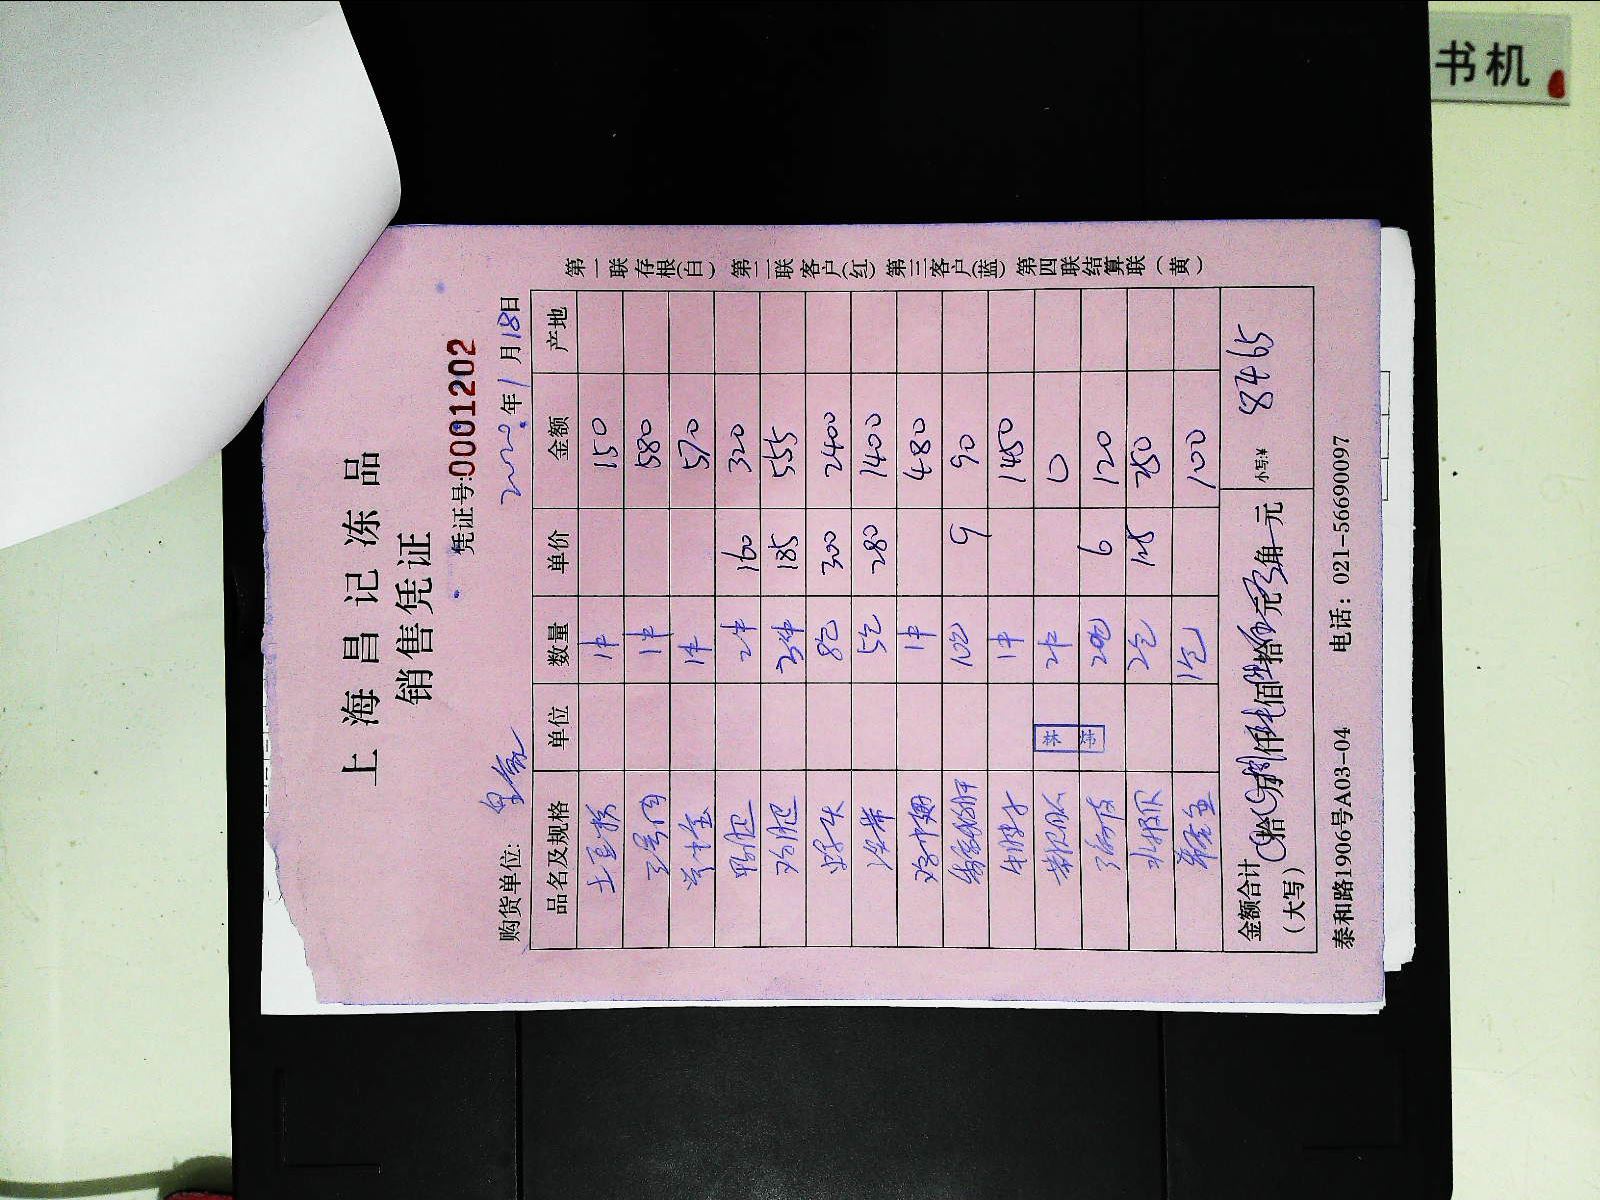 书机
上海昌记冻品
销售凭证
凭证号:0001202
购货单位: 2020年1月18日
品名及规格 单位 数量 单价 金额 产地
1件 150
1件 580
1件 570
鸭肫 2件 160 320
鸡肫 3件 185 555
8包 300 2400
5包 280 1400
鸡中翅 1件 480
10包 9 90
1件 1450
2件 0
20包 6 120
2包 125 250
1包 100
金额合计
(大写) 拾万捌仟肆佰陆拾伍元角元 小写:¥ 8465
泰和路1906号A03-04 电话: 021-56690097
第一联存根(白) 第二联 客户(红) 第三客户(蓝) 第四联结算联(黄)